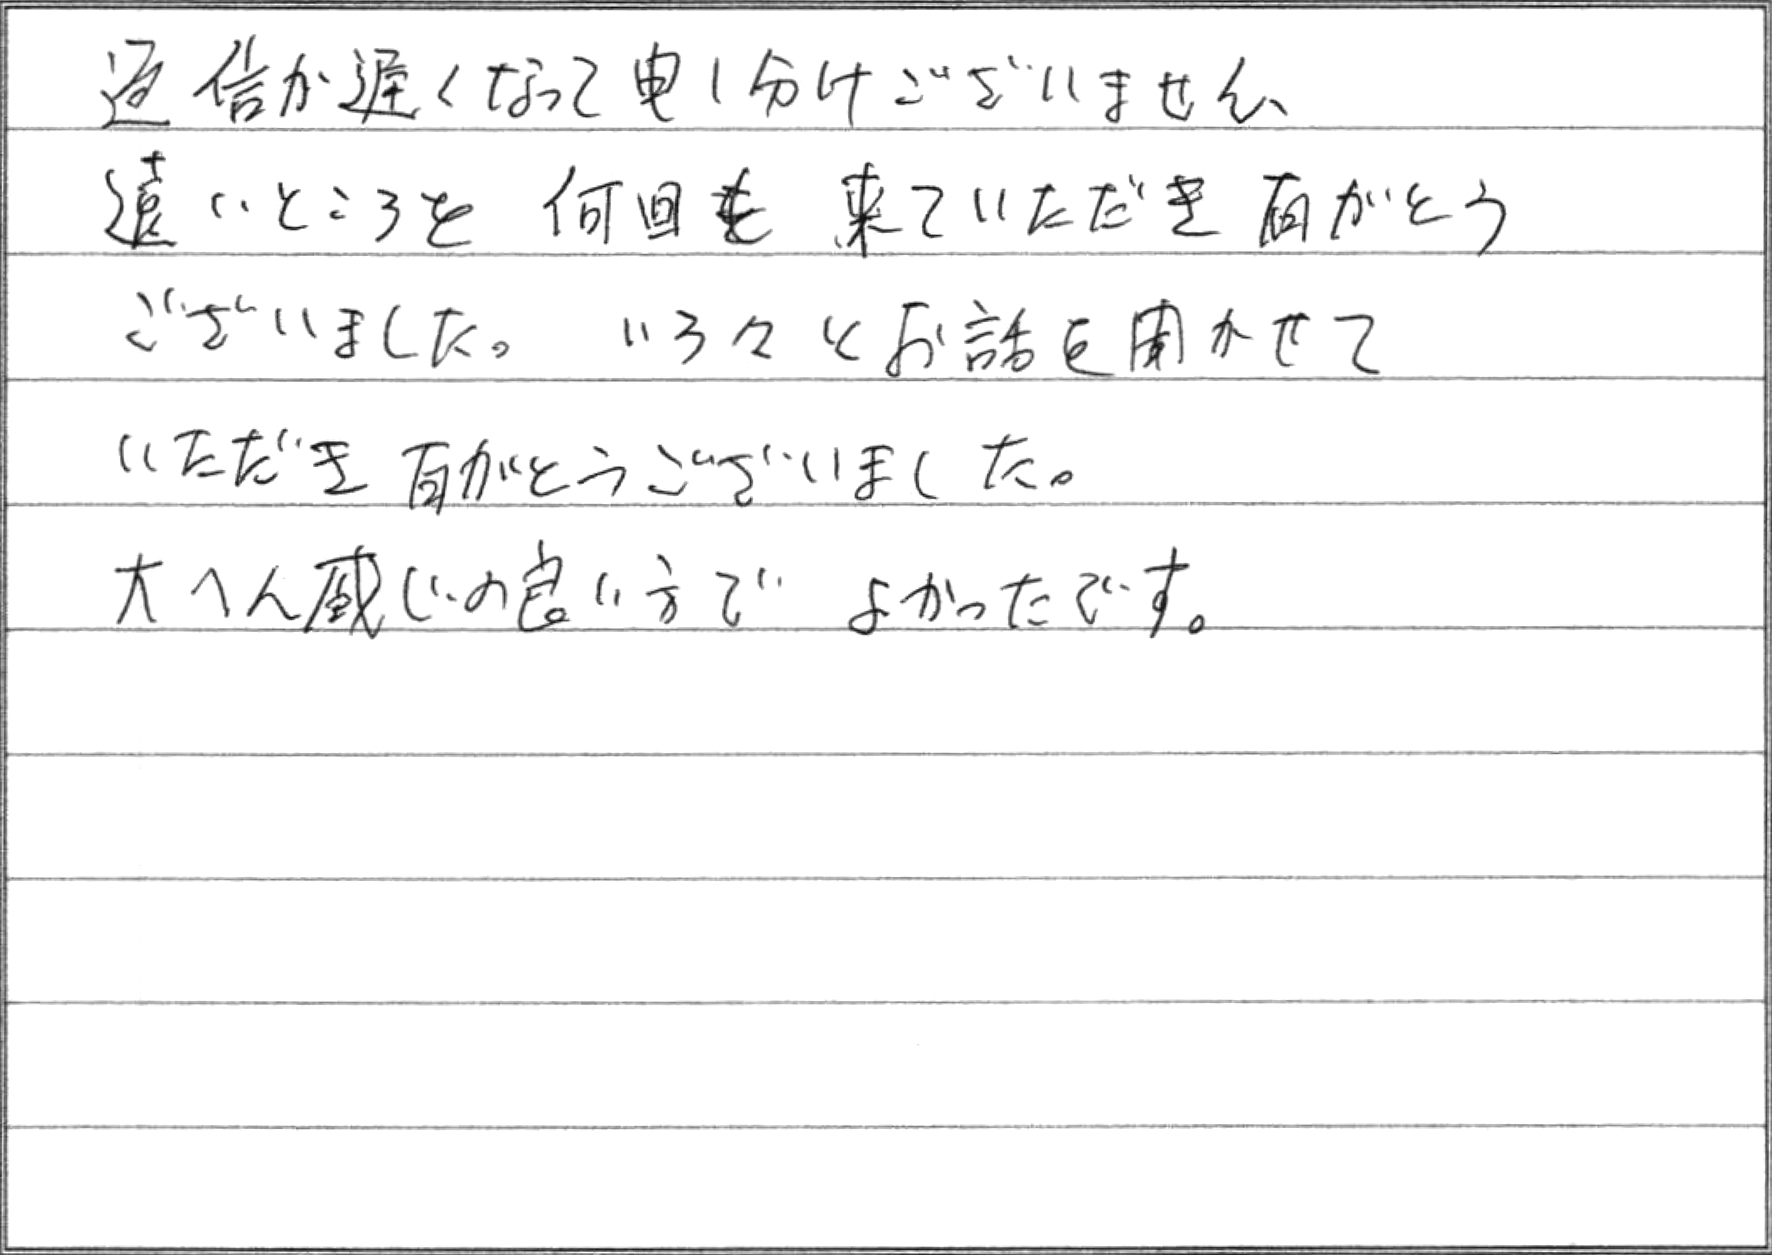 返信が遅くなって申し分けございません、
遠いところを 何回も 来ていただき 有がとう
ございました。 いろ々とお話を聞かせて
いただき 有がとうございました。
大へん感じの良い方で よかったです。